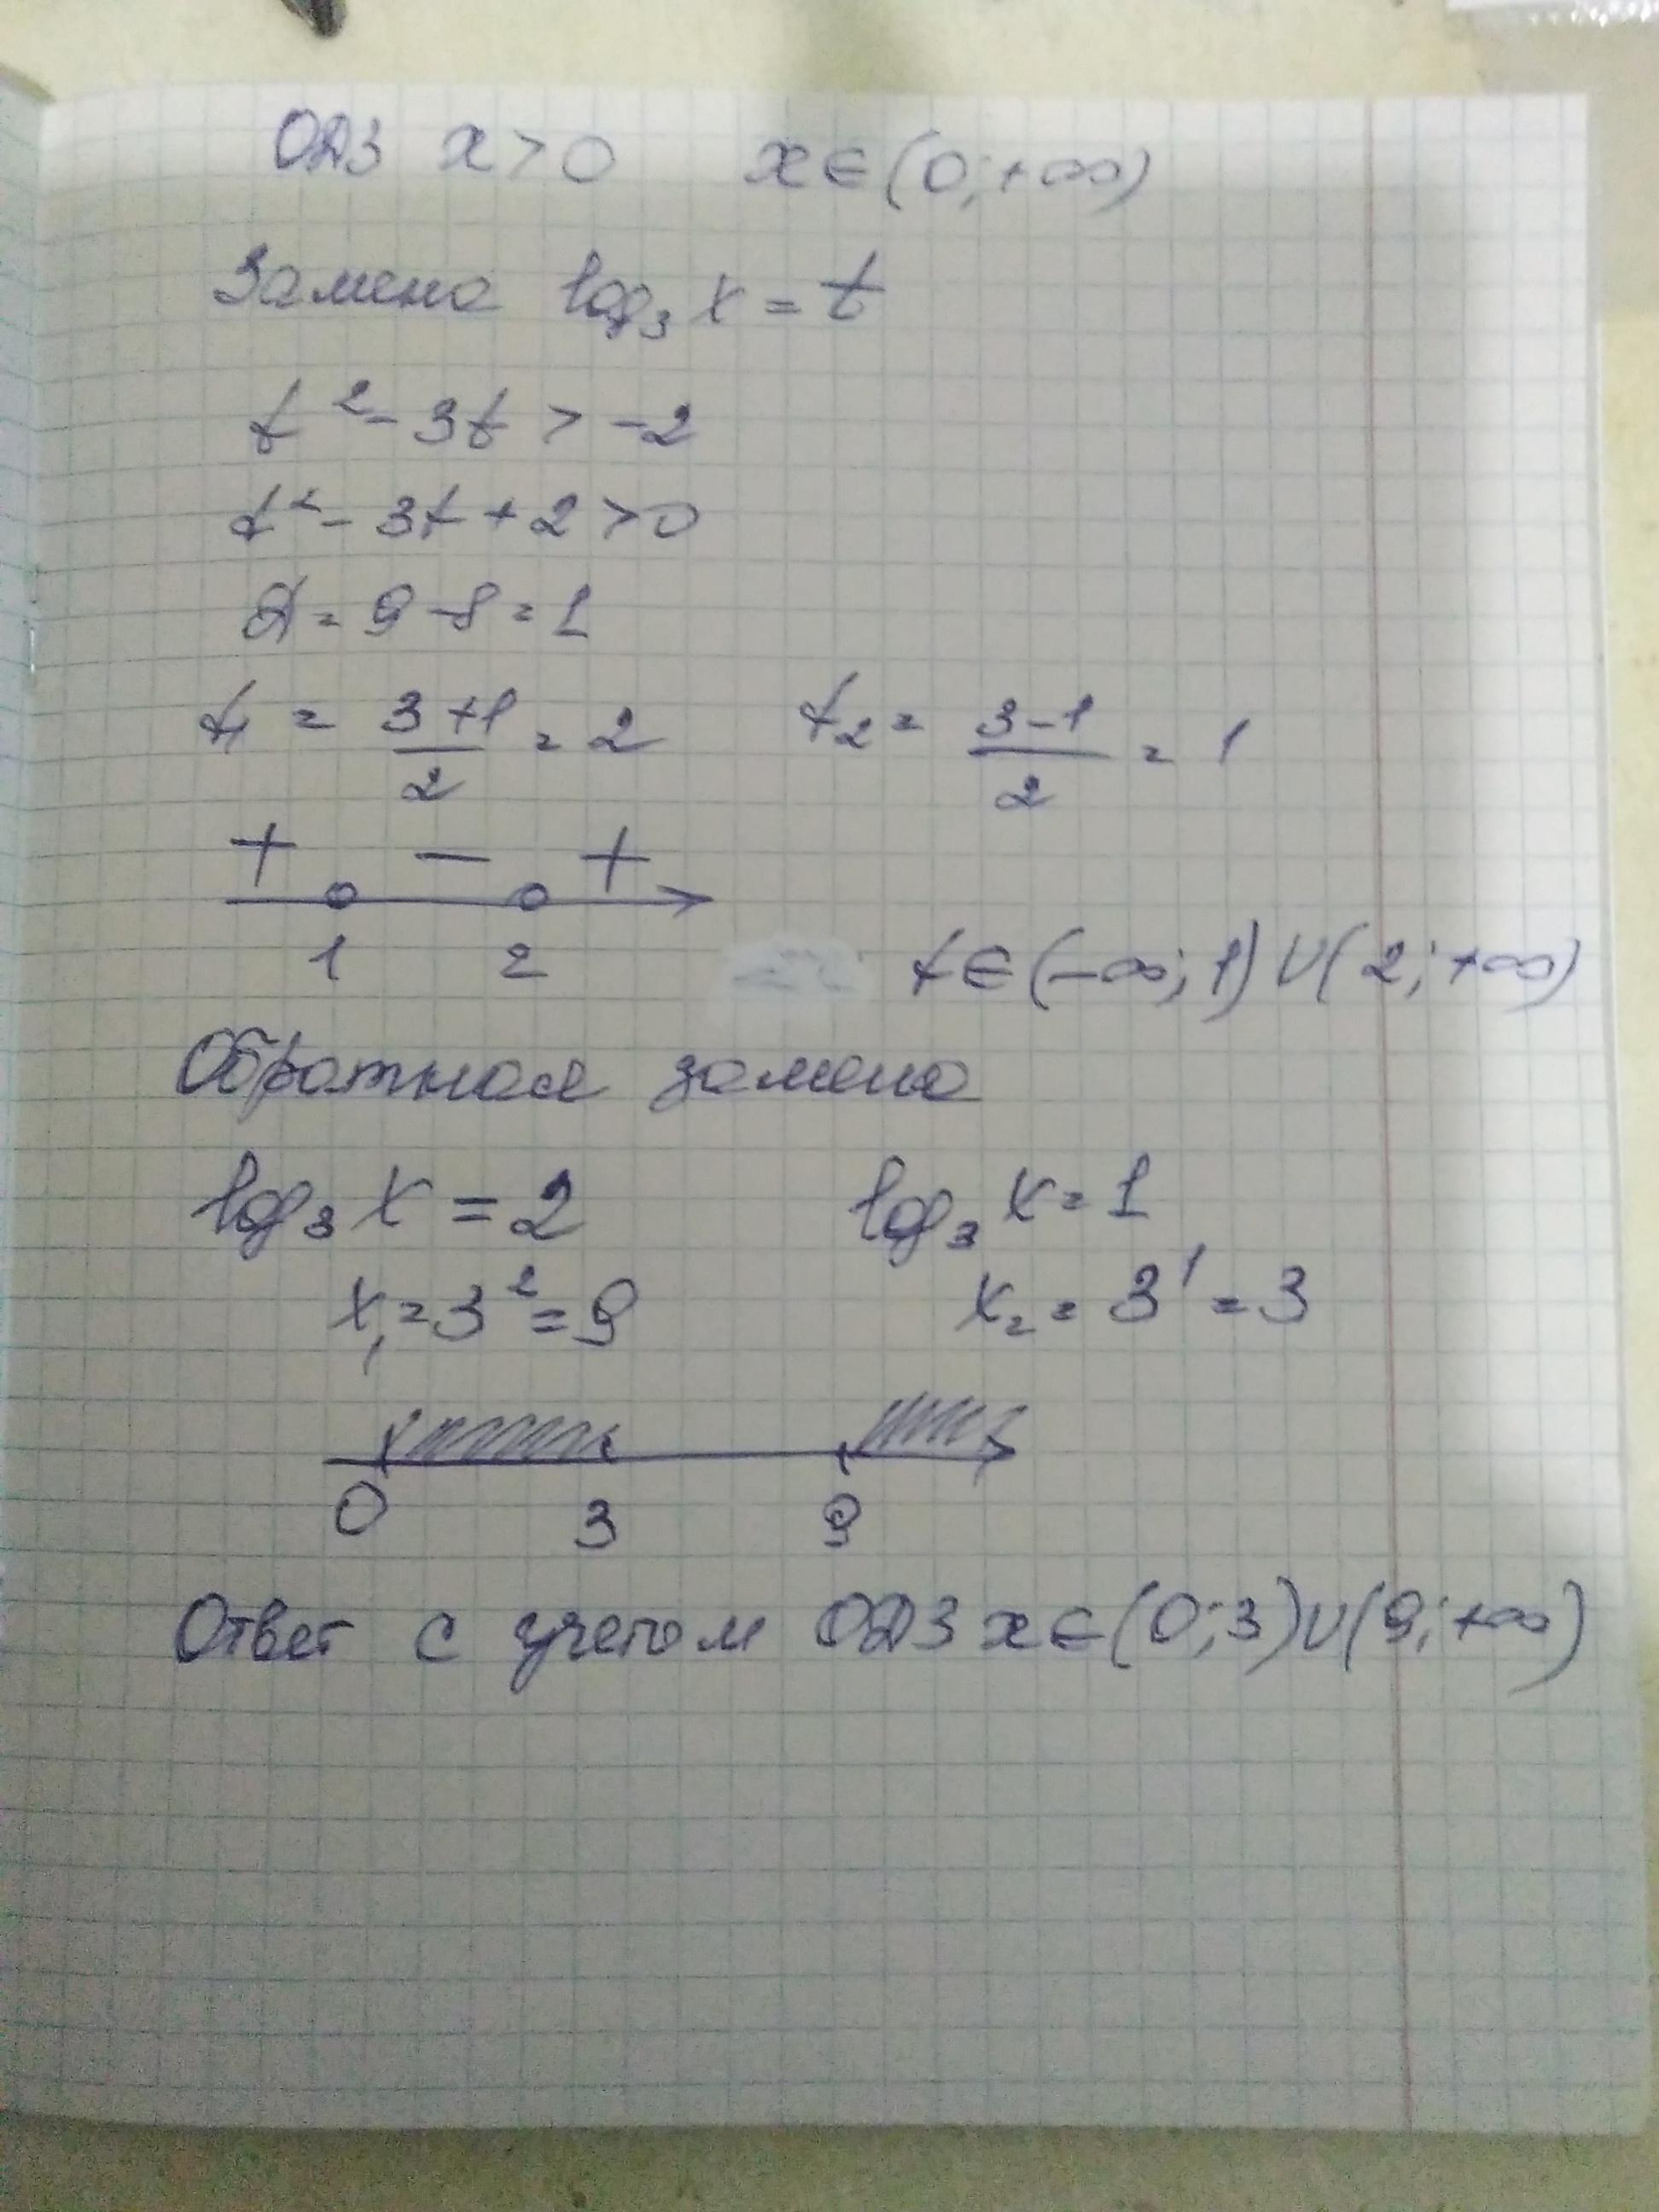 ОДЗ x > 0 x ∈ (0; +∞)
Замена log₃ x = t
t² - 3t > -2
t² - 3t + 2 > 0
Д = 9 - 8 = 1
t₁ = (3+1)/2 = 2 t₂ = (3-1)/2 = 1
+ - +
1 2
t ∈ (-∞; 1) ∪ (2; +∞)
Обратная замена
log₃ x = 2 log₃ x = 1
x₁ = 3² = 9 x₂ = 3¹ = 3
0 3 9
Ответ с учетом ОДЗ x ∈ (0; 3) ∪ (9; +∞)